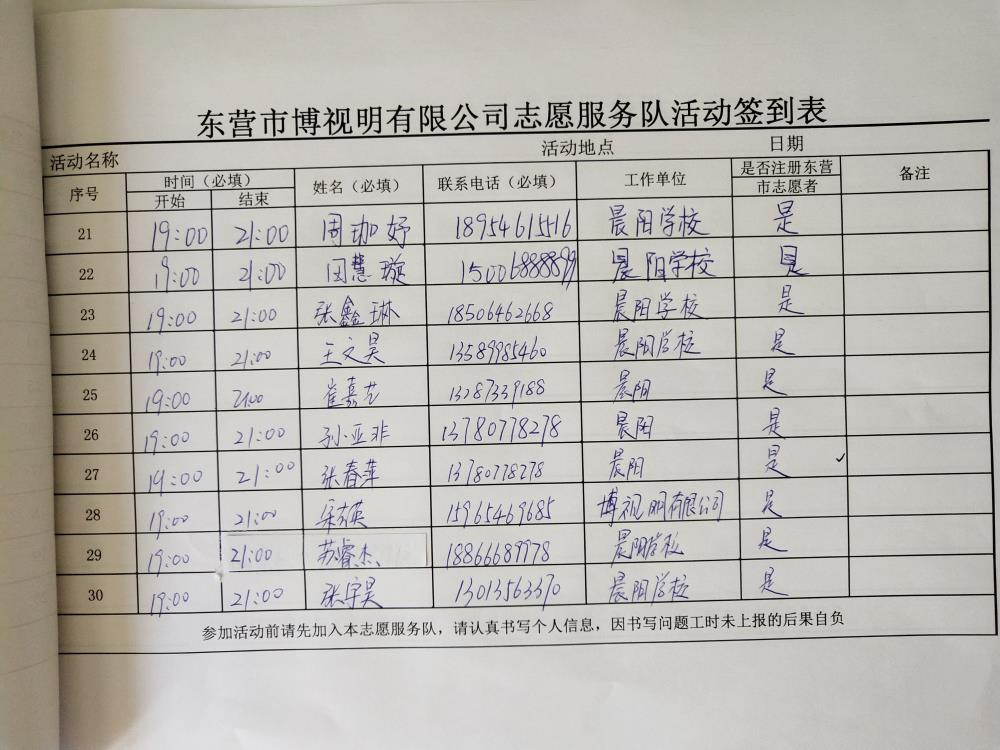 东营市博视明有限公司志愿服务队活动签到表
活动名称 活动地点 日期
序号 时间（必填） 姓名（必填） 联系电话（必填） 工作单位 是否注册东营 备注
开始 结束 市志愿者
21 19:00 21:00 周珈妤 18954615516 晨阳学校 是
22 19:00 21:00 闵慧璇 15006888899 晨阳学校 是
23 19:00 21:00 张鑫琳 18506462668 晨阳学校 是
24 19:00 21:00 王文昊 13589985460 晨阳学校 是
25 19:00 21:00 崔嘉艺 13287339188 晨阳 是
26 19:00 21:00 孙亚非 13780778278 晨阳 是
27 19:00 21:00 张春萍 13780778278 晨阳 是
28 19:00 21:00 15965469685 博视明有限公司 是
29 19:00 21:00 苏睿杰 18866689978 晨阳学校 是
30 19:00 21:00 张宇昊 13013563370 晨阳学校 是
参加活动前请先加入本志愿服务队，请认真书写个人信息，因书写问题工时未上报的后果自负